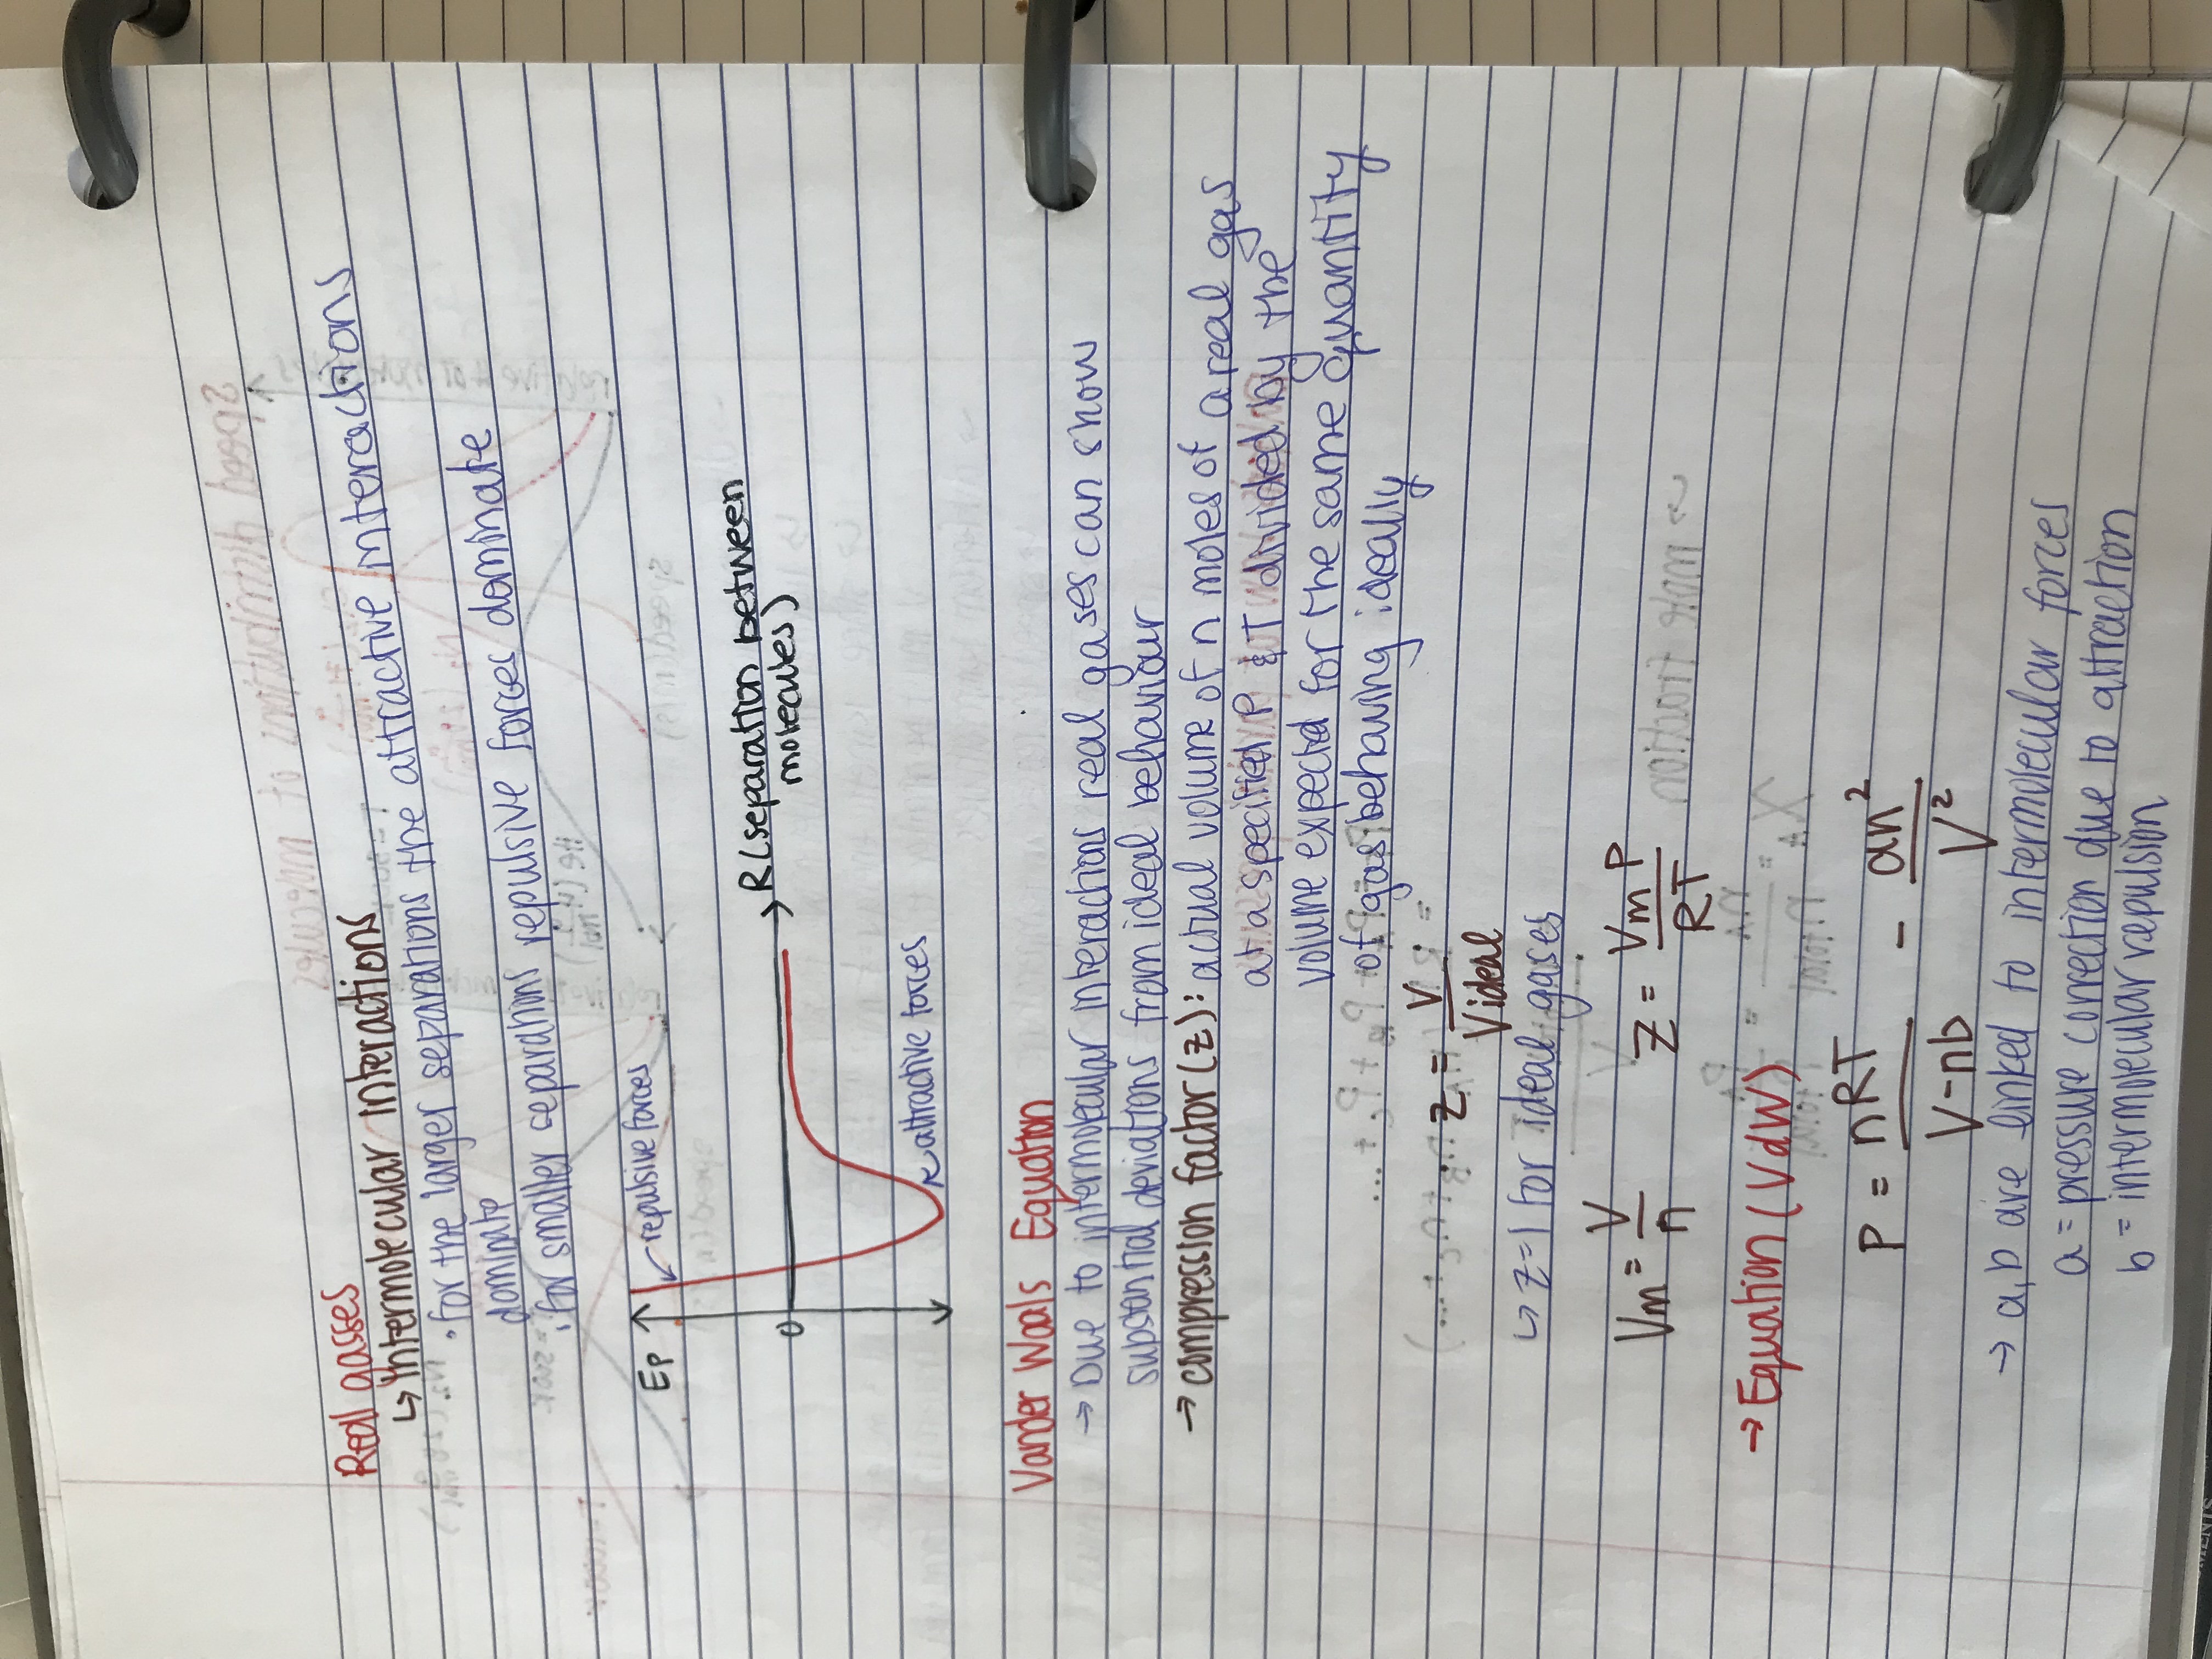 Real gasses
↳ Intermolecular interactions
• for the larger separations the attractive interactions
dominate
• for smaller separations repulsive forces dominate
Ep
repulsive forces
0
R (separation between
molecules)
attractive forces
Vander Waals Equation
→ Due to intermolecular interactions real gases can show
substantial deviations from ideal behaviour
→ compression factor (z): actual volume of n moles of a real gas
at a specified P & T divided by the
volume expected for the same quantity
of gas behaving ideally
z = V / Videal
↳ z=1 for ideal gases
Vm = V / n    Z = VmP / RT
→ Equation (VdW)
P = nRT / V-nb - an² / V²
→ a, b are linked to intermolecular forces
a = pressure correction due to attraction
b = intermolecular repulsion